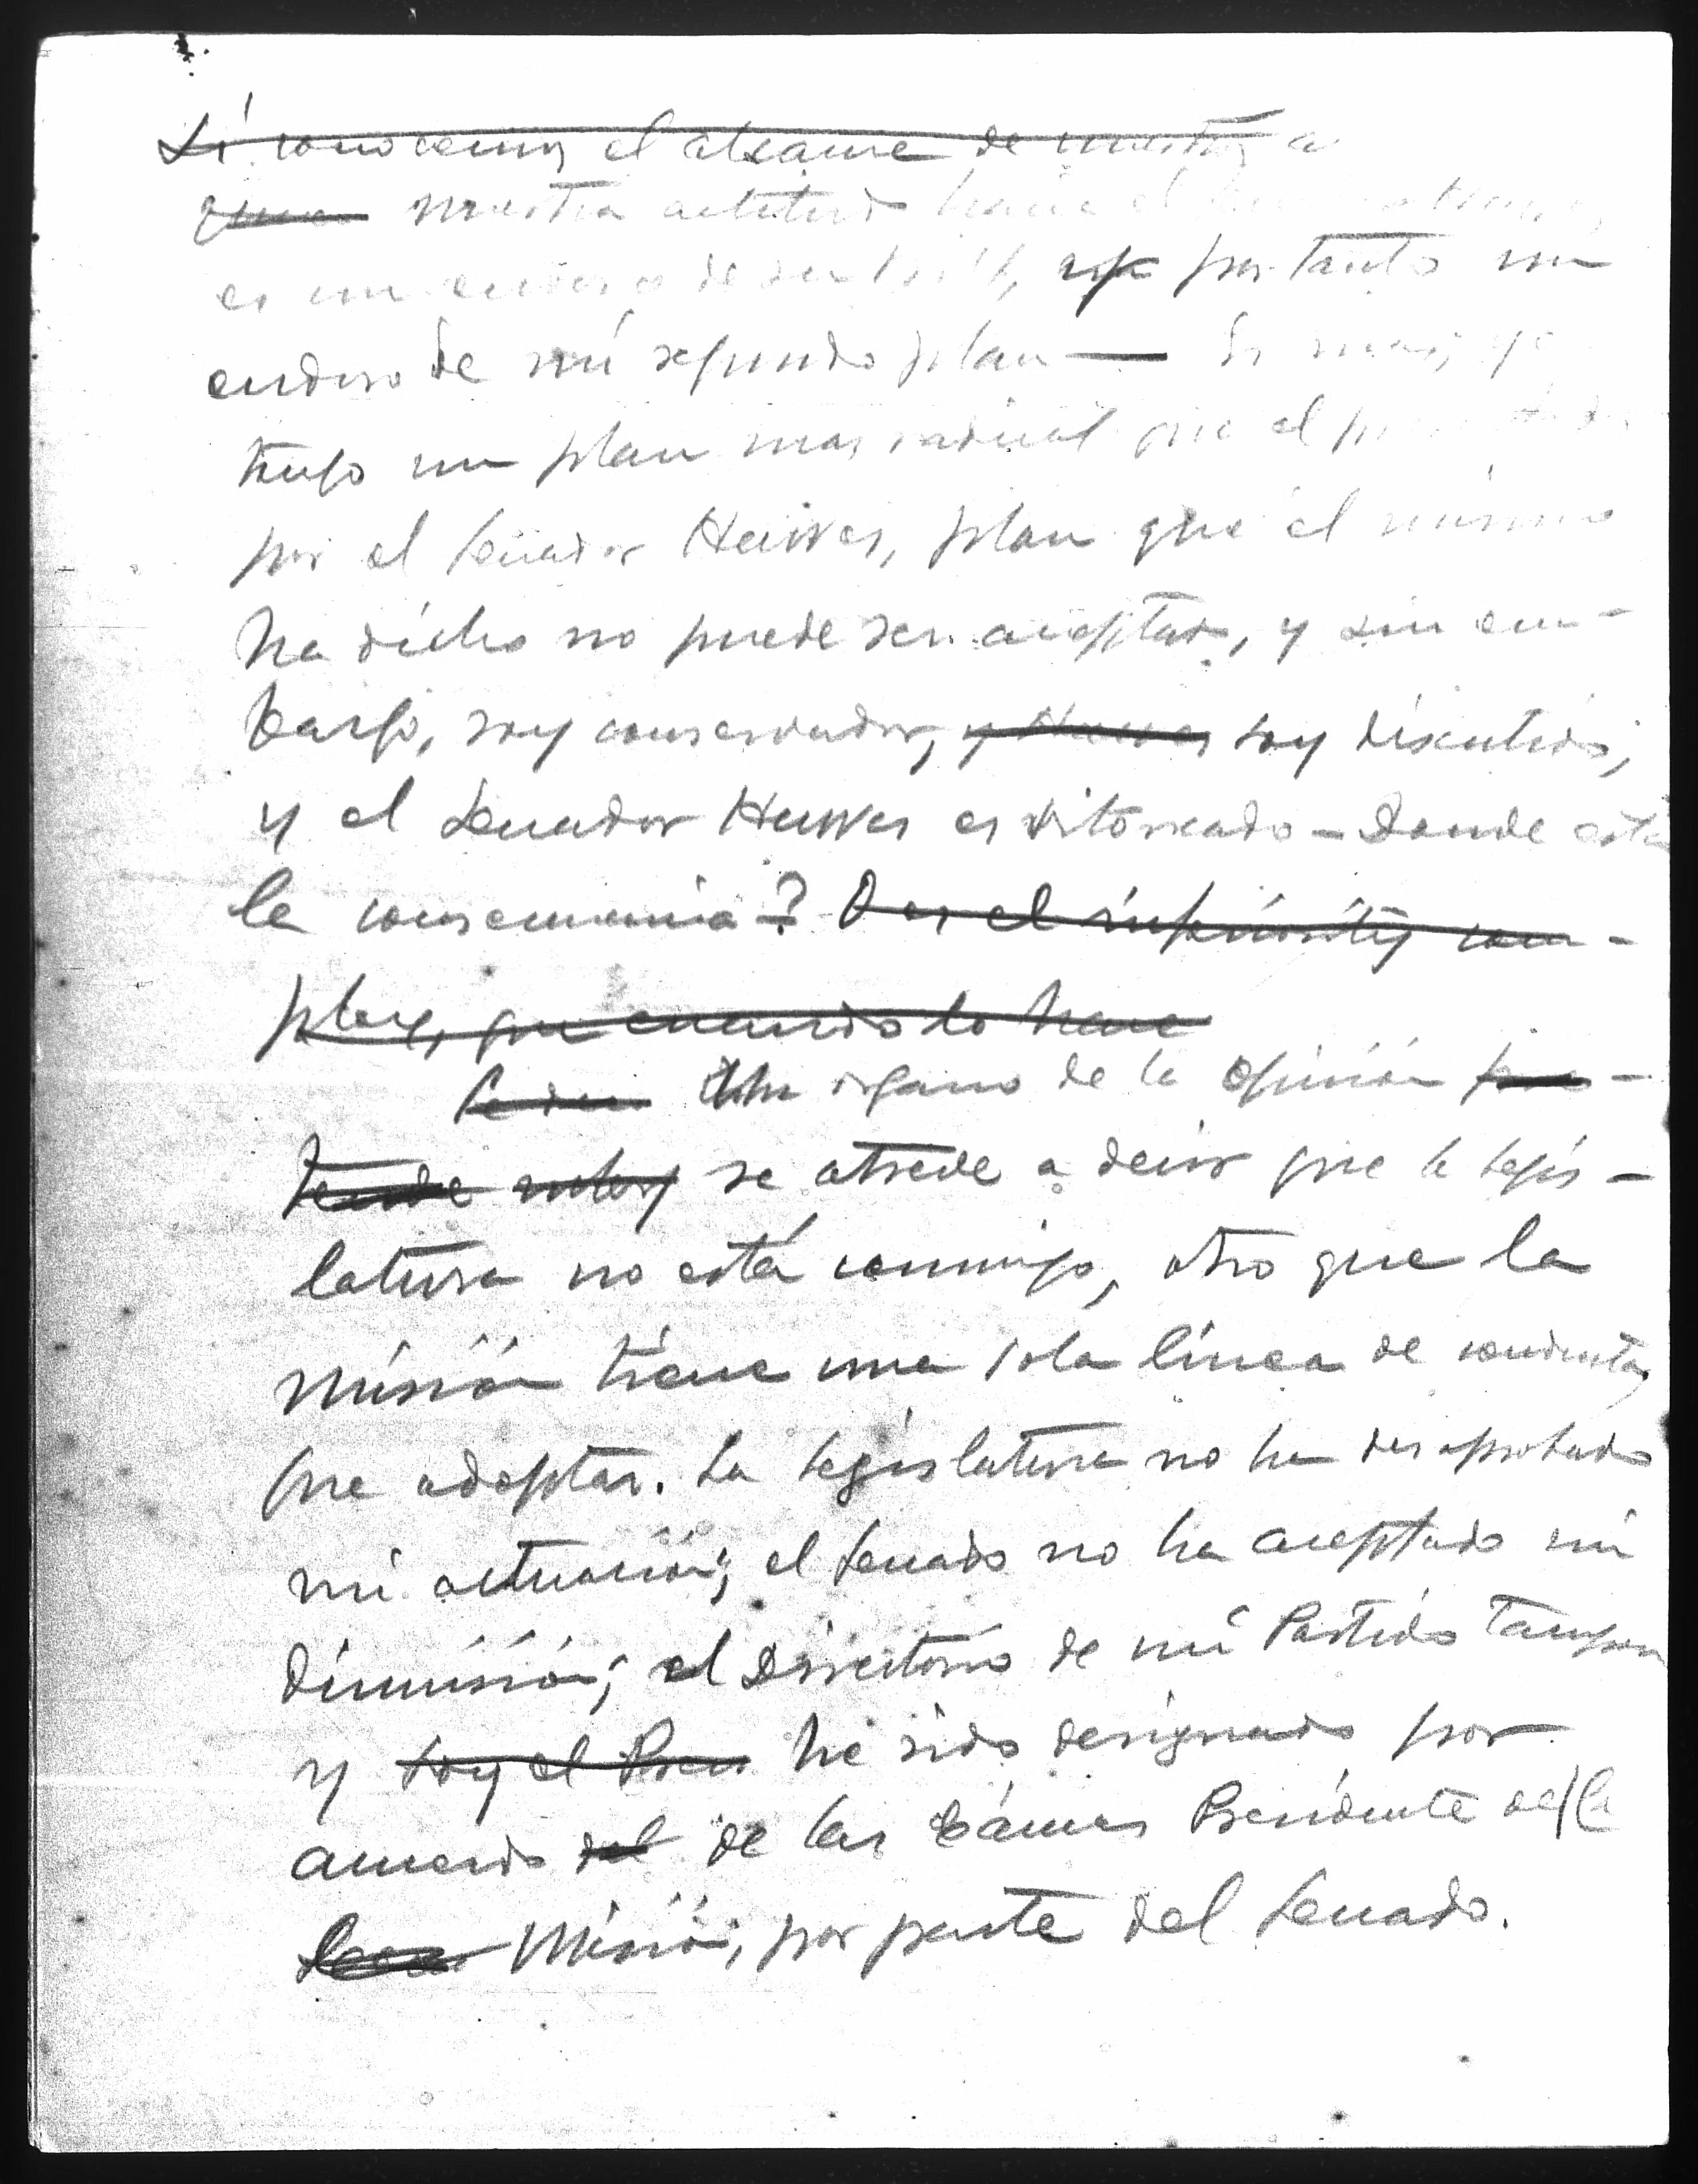 Si conocemos el alcance de nuestra a
nuestra actitud hacia el
es un endoso de, por tanto un
endoso de mi segundo plan — Es mas, yo
tengo un plan mas radical que el presentado
por el Senador Hawes, plan que él mismo
ha dicho no puede ser aceptado, y sin em-
bargo, soy conservador, y Hawes soy discutido,
y el Senador Hawes es vitoreado - Donde está
la consecuencia? O es el inferiority com-
plex, que cuando lo hace
Un organo de la opinión pre-
tende se atreve a decir que la Legis-
latura no está conmigo, otro que la
Misión tiene una sola linea de conducta
que adoptar. La Legislatura no ha desaprobado
mi actuación; el Senado no ha aceptado mi
dimisión; el Directorio de mi Partido tampoco
y soy el Pres he sido designado por
acuerdo del de las Cámaras Presidente de la
Misión, por parte del Senado.